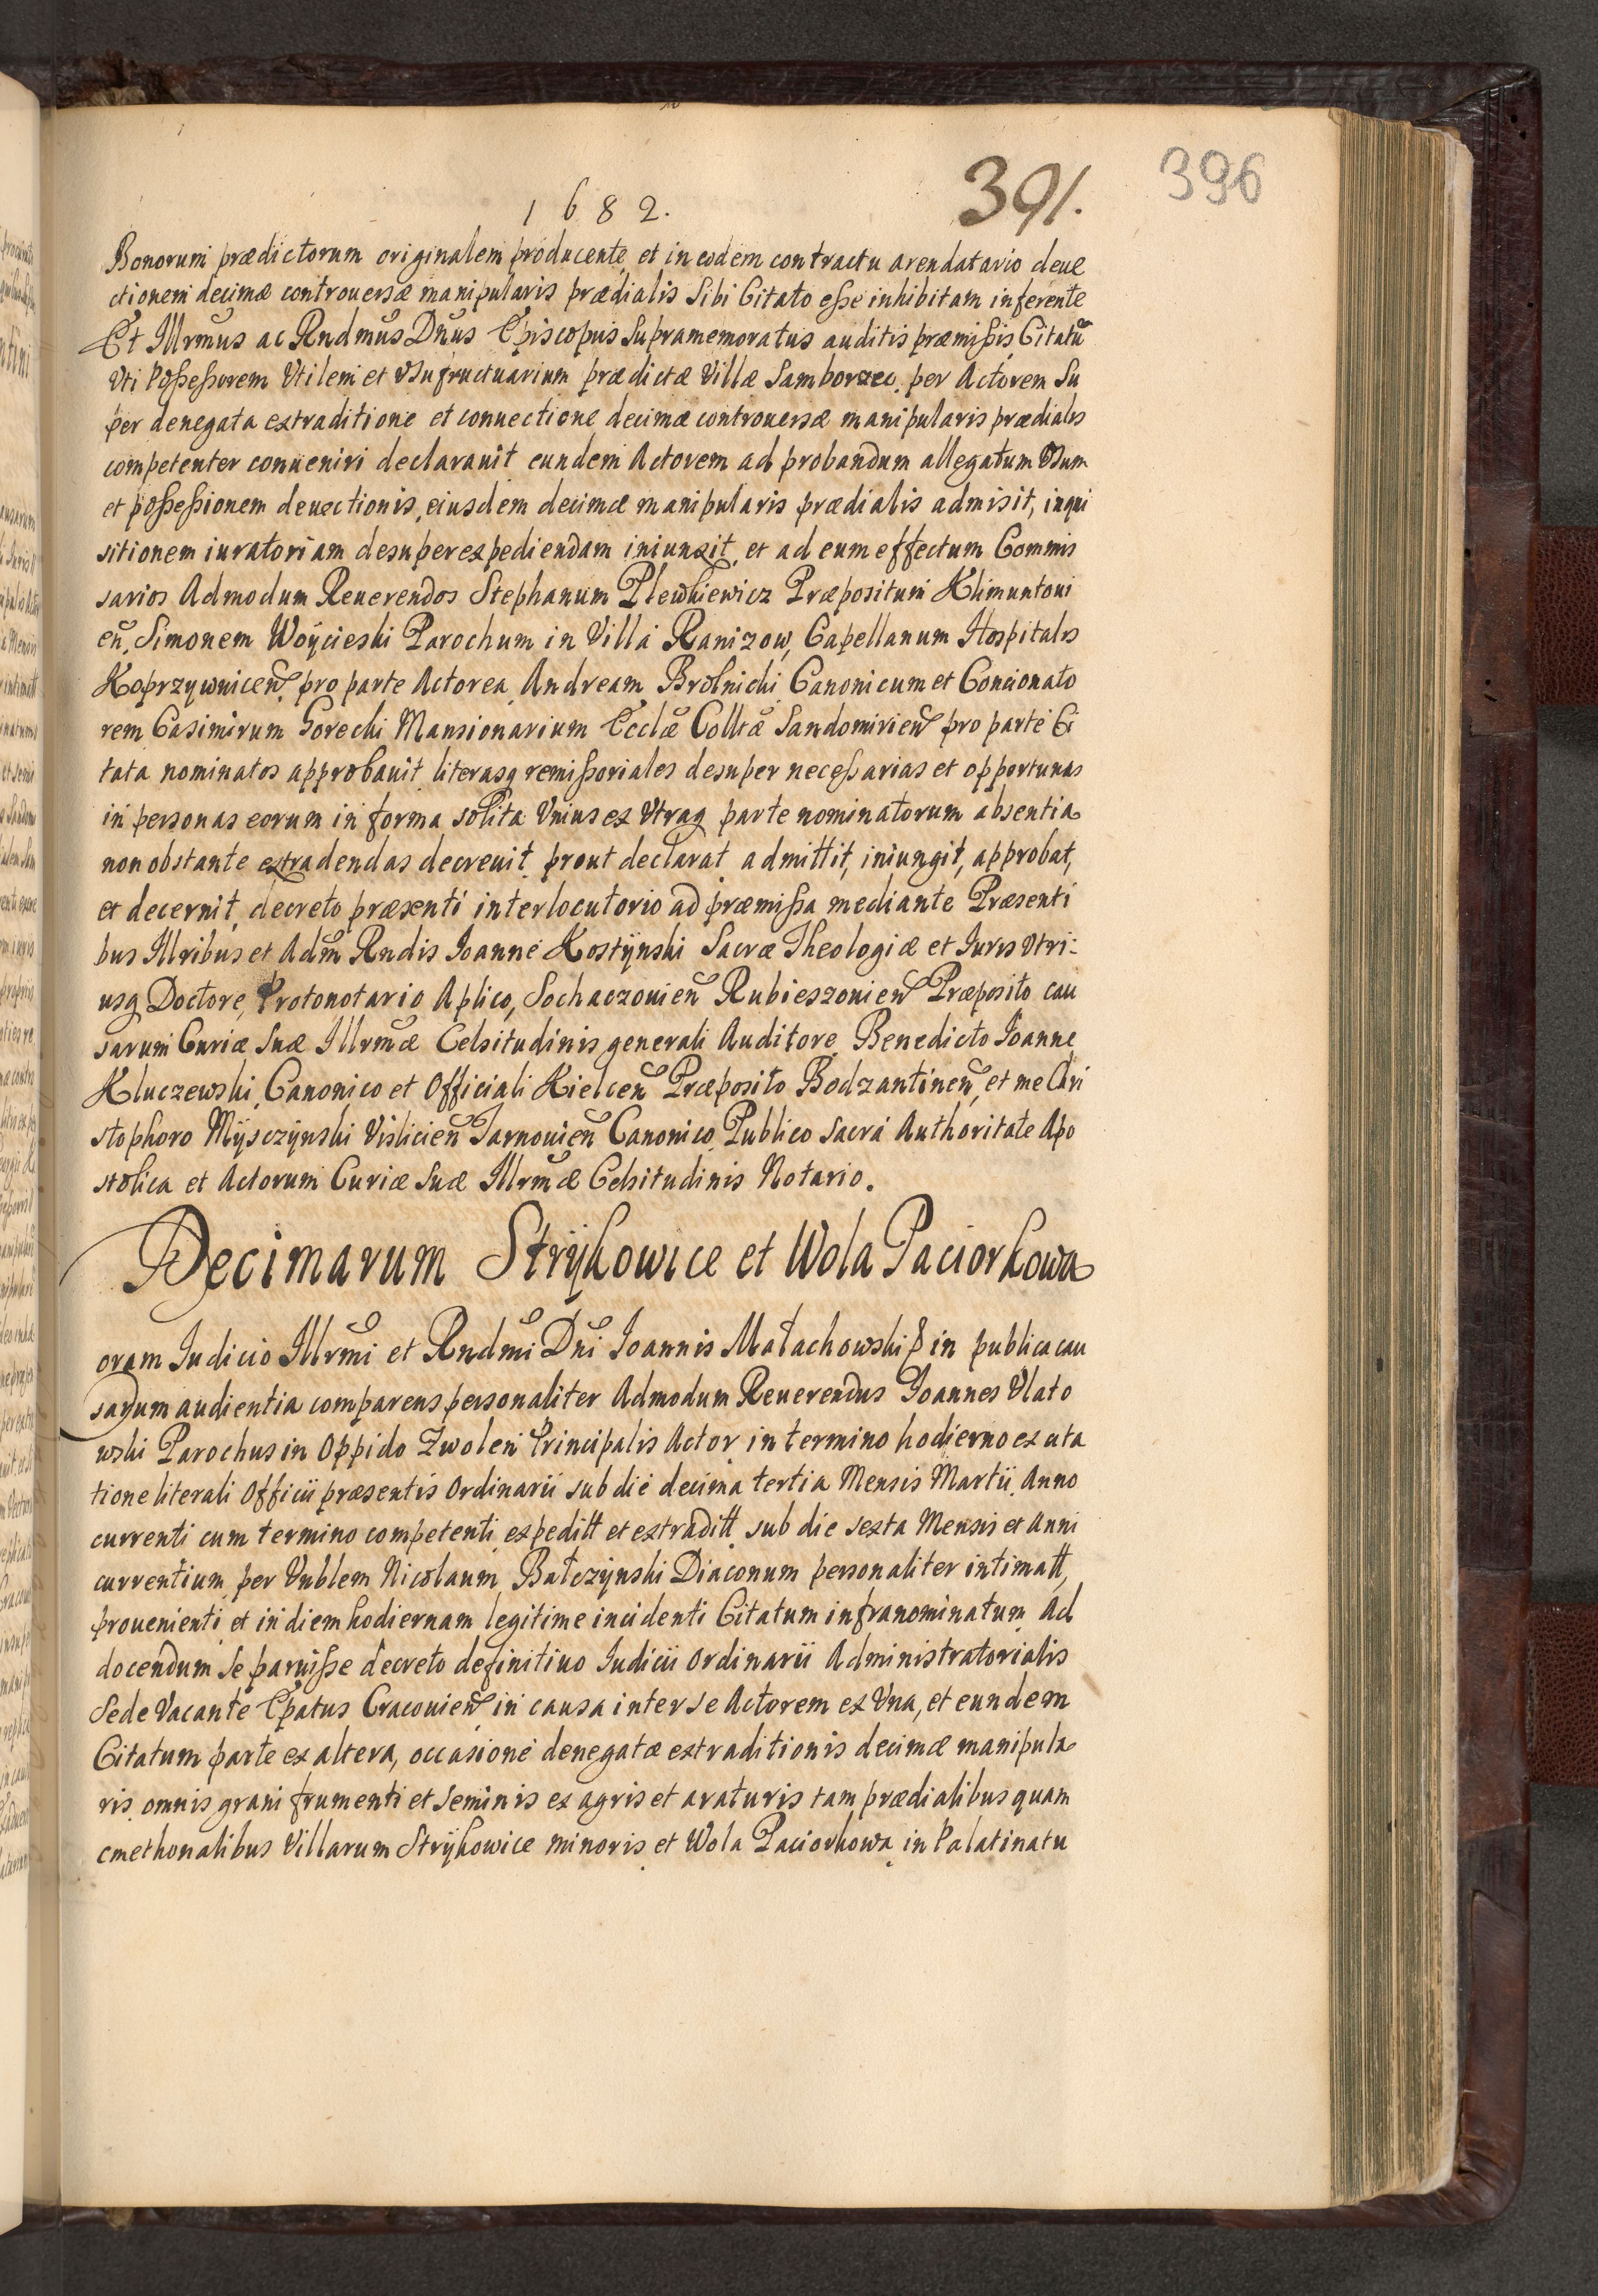 391.
396
1682.
Bonorum prædictorum originalem producente, et in eodem contractu arendatario deue
ctionem decimæ controuersæ manipularis prædialis Sibi Citato esse inhibitam inferente
Et Illrmus ac Rndmus Dnus Episcopus Supramemoratus auditis præmissis, Citatū
Vti Possessorem Vtilem et Vsufructuarium prædictæ Villæ Samborzec, per Actorem Su
per denegata extraditione et conuectione decimæ controuersæ manipularis prædialis
competenter conueniri declarauit eundem Actorem ad probandum allegatum Vsum
et possessionem deuectionis, eiusdem decimæ manipularis prædialis admisit, inqui
sitionem iuratoriam desuper expediendam iniunxit, et ad eum effectum Commis
sarios Admodum Reuerendos Stephanum Plewkiewicz Præpositum Klimuntoui
en̄, Simonem Woÿcieski Parochum in Villa Ranizow, Capellanum Hospitalis
Koprzywnicen̄, pro parte Actorea, Andream Brolnicki Canonicum et Concionato
rem Casimirum Gorecki Mansionarium Eccłæ Colltæ Sandomirien̄ pro parte Ci
tata nominatos approbauit, literasq remissoriales desuper necessarias et opportunas
in personas eorum in forma solita Vnius ex Vtraq parte nominatorum absentia
non obstante extradendas decreuit, prout declarat, admittit, iniungit, approbat,
et decernit, decreto præsenti interlocutorio ad præmissa mediante Præsenti
bus Illribus et Adm̄ Rndis Ioanne Kostÿnski Sacræ Theologiæ et Iuris Vtri:
usq Doctore, Protonotario Aplico, Sochaczouien̄ Rubieszouien̄ Præposito cau
sarum Curiæ Suæ Illrmæ Celsitudinis generali Auditore, Benedicto Ioanne
Kluczewski, Canonico et Officiali Kielcen̄ Præposito Bodzantinen̄, et me Chri
stophoro Mÿsczÿnski Vislicien̄ Tarnouien̄ Canonico, Publico Sacra Authoritate Apo
stolica et Actorum Curiæ Suæ Illrmæ Celsitudinis Notario.
Decimarum Strÿkowice et Wola Paciorkowa
Coram Iudicio Illrmi et Rndmi Dni Ioannis Małachowski &c in publica cau
sarum audientia comparens personaliter Admodum Reuerendus Ioannes Vlato
wski Parochus in Oppido Zwolen Principalis Actor, in termino hodierno ex cita
tione literali Officii præsentis Ordinarii sub die decima tertia Mensis Martii Anno
currenti cum termino competenti, expeditt et extraditt, sub die sexta Mensis et Anni
currentium, per Vnblem Nicolaum Bałczÿnski Diaconum personaliter intimatt,
prouenienti, et in diem hodiernam legitime incidenti Citatum infranominatum, Ad
docendum Se paruisse decreto definitiuo Iudicii Ordinarii Administratorialis
Sede Vacante Epatus Cracouien̄, in causa inter se Actorem ex Vna, et eundem
Citatum parte ex altera, occasione denegatæ extraditionis decimæ manipula
ris, omnis grani frumenti et seminis ex agris et araturis tam prædialibus quam
cmethonalibus Villarum Strÿkowice minoris et Wola Paciorkowa, in Palatinatu